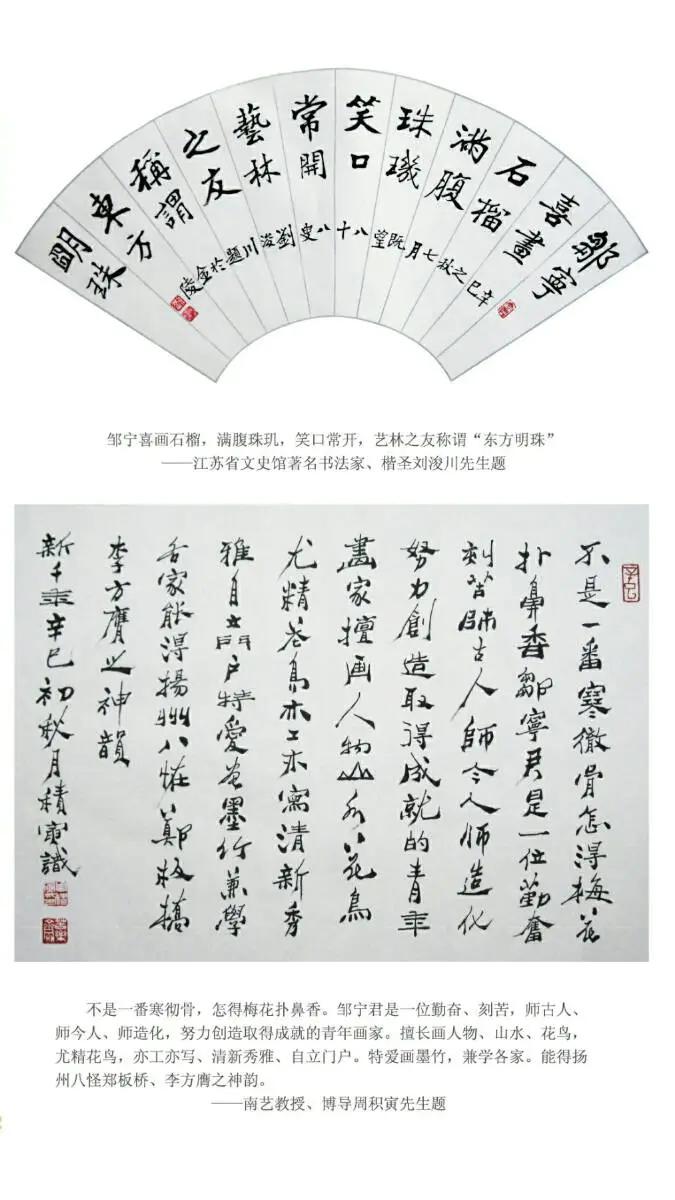 鄒寧
喜畫
石榴
滿腹
珠璣
笑口
常開
藝林
之友
稱謂
東方
明珠
辛巳之秋七月既望八十八叟劉浚川題於金陵
邹宁喜画石榴，满腹珠玑，笑口常开，艺林之友称谓“东方明珠”
——江苏省文史馆著名书法家、楷圣刘浚川先生题
辛巳
不是一番寒徹骨怎得梅花
扑鼻香鄒寧君是一位勤奮
刻苦師古人師今人師造化
努力創造取得成就的青年
畫家擅画人物山水花鳥
尤精花鳥亦工亦寫清新秀
雅自立門户特愛畫墨竹兼學
各家能得揚州八怪鄭板橋
李方膺之神韻
新千年辛巳初秋月積寅識
不是一番寒彻骨，怎得梅花扑鼻香。邹宁君是一位勤奋、刻苦，师古人、
师今人、师造化，努力创造取得成就的青年画家。擅长画人物、山水、花鸟，
尤精花鸟，亦工亦写、清新秀雅、自立门户。特爱画墨竹，兼学各家。能得扬
州八怪郑板桥、李方膺之神韵。
——南艺教授、博导周积寅先生题